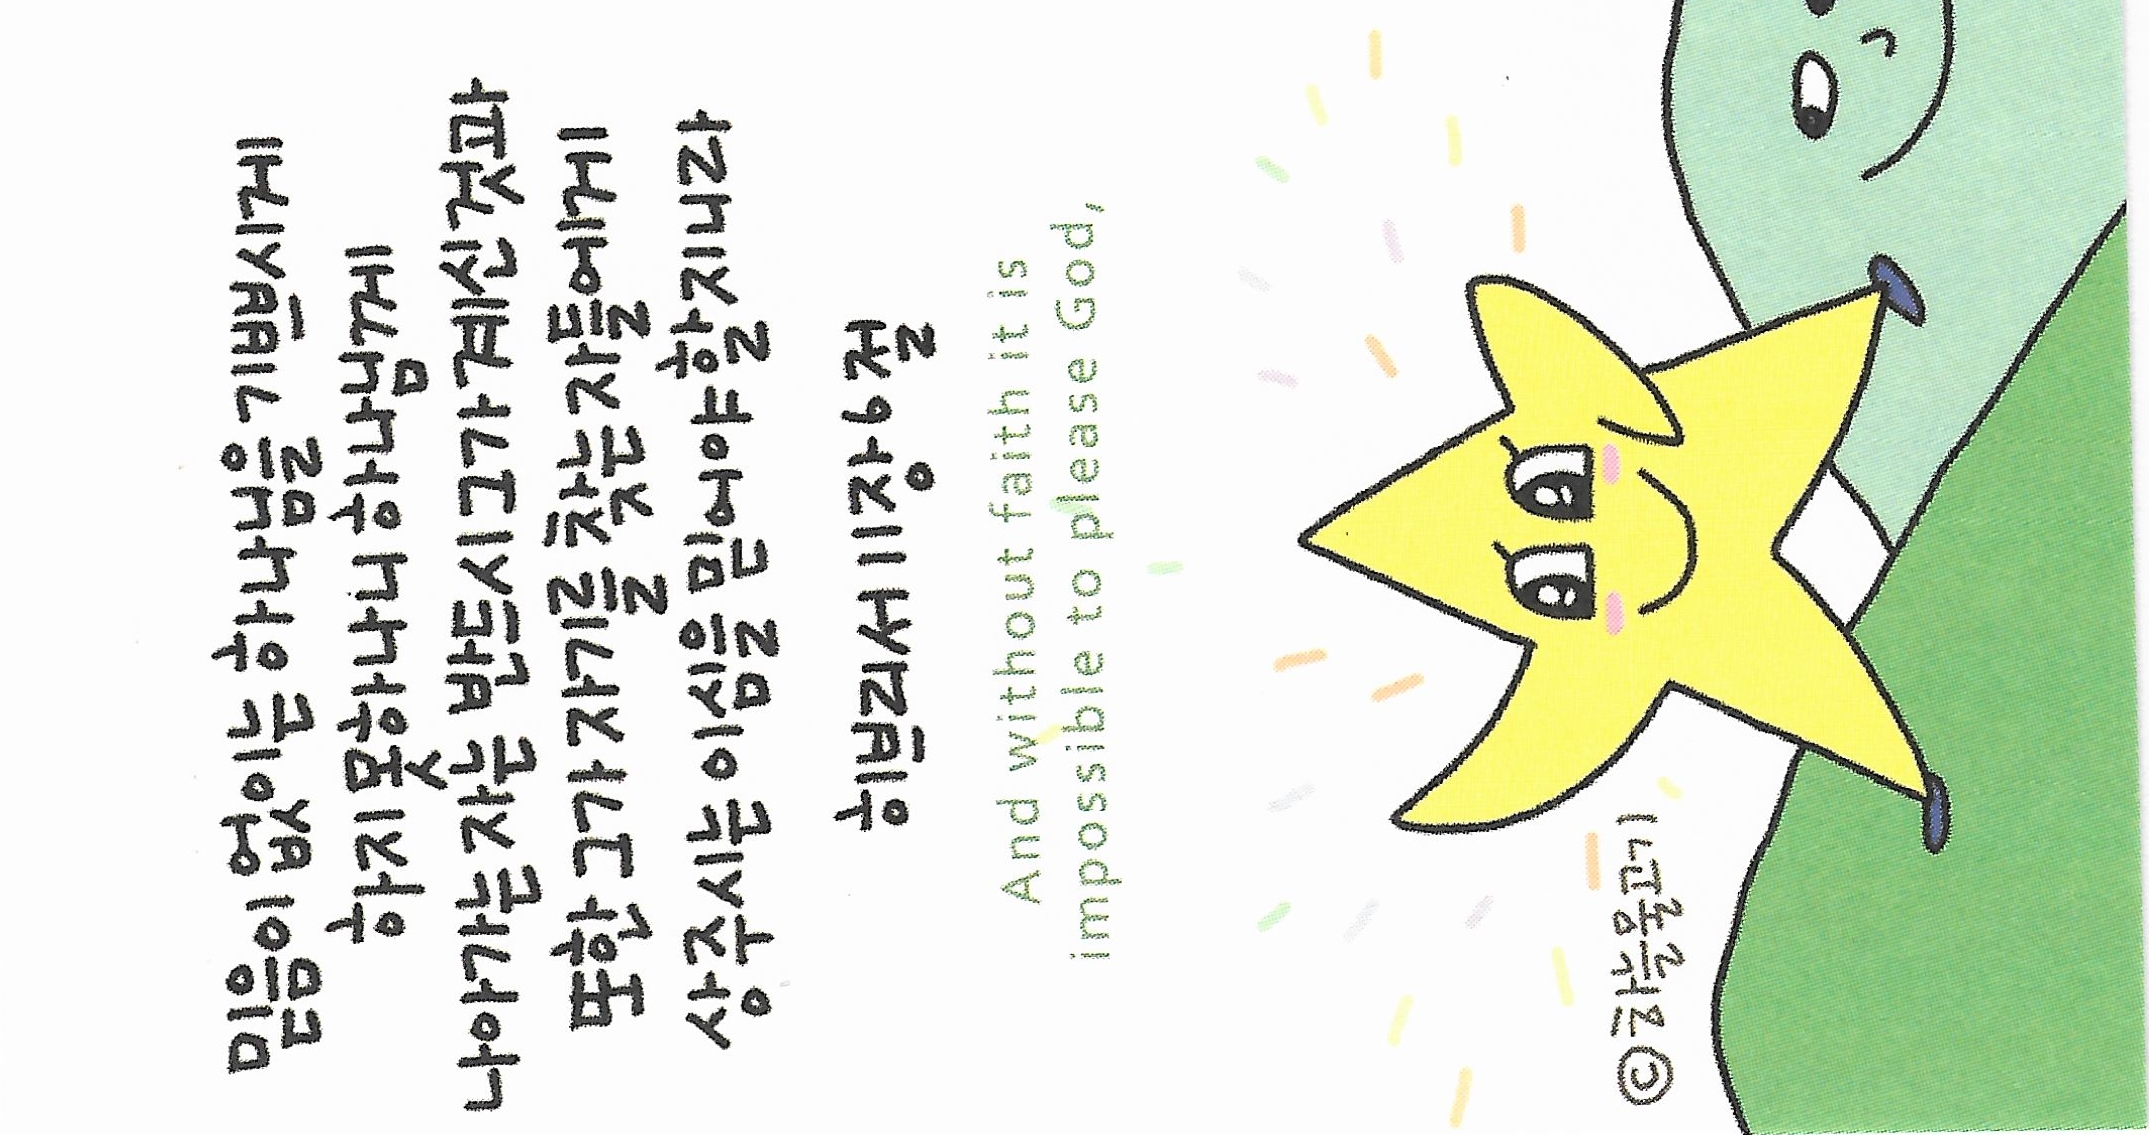 믿음이 없이는 하나님을 기쁘시게
하지 못하나니 하나님께
나아가는 자는 반드시 그가 계신 것과
또한 그가 자기를 찾는 자들에게
상 주시는 이심을 믿어야 할지니라
히브리서 11장 6절
And without faith it is
impossible to please God,
©하늘물고기